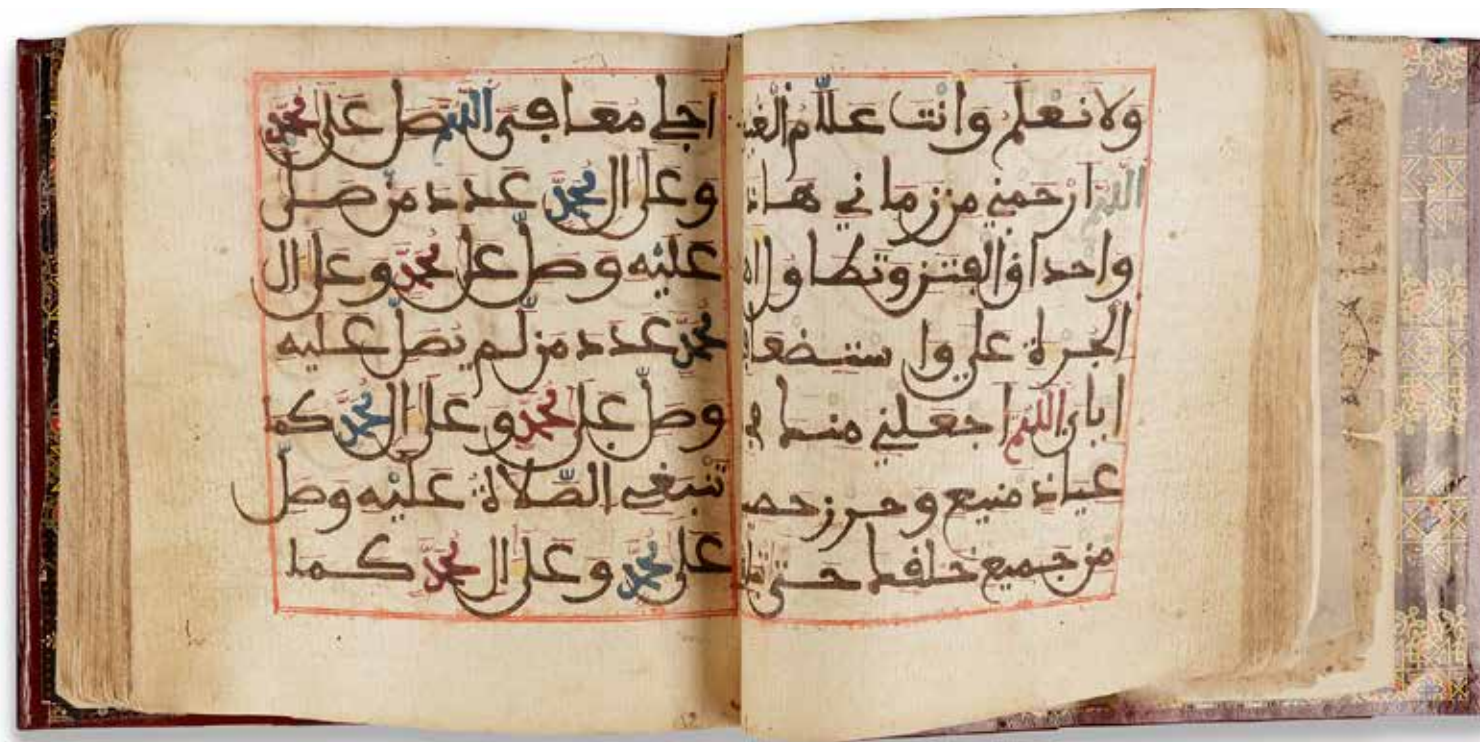 ولا نعلم وانت علام
اللهم ارحمني من زماني هاذا
واحداق الفتن وتطاول
الجرءة علي واستضعا
اياي اللهم اجعلني منك في
عياذ منيع وحرز
من جميع خلقك حتى
اجلي معافى اللهم صل على محمد
وعلى ال محمد عدد من صلى
عليه وصل على محمد وعلى ال
محمد عدد من لم يصل عليه
وصل على محمد وعلى ال محمد كما
تنبغي الصلاة عليه وصل
على محمد وعلى ال محمد كما